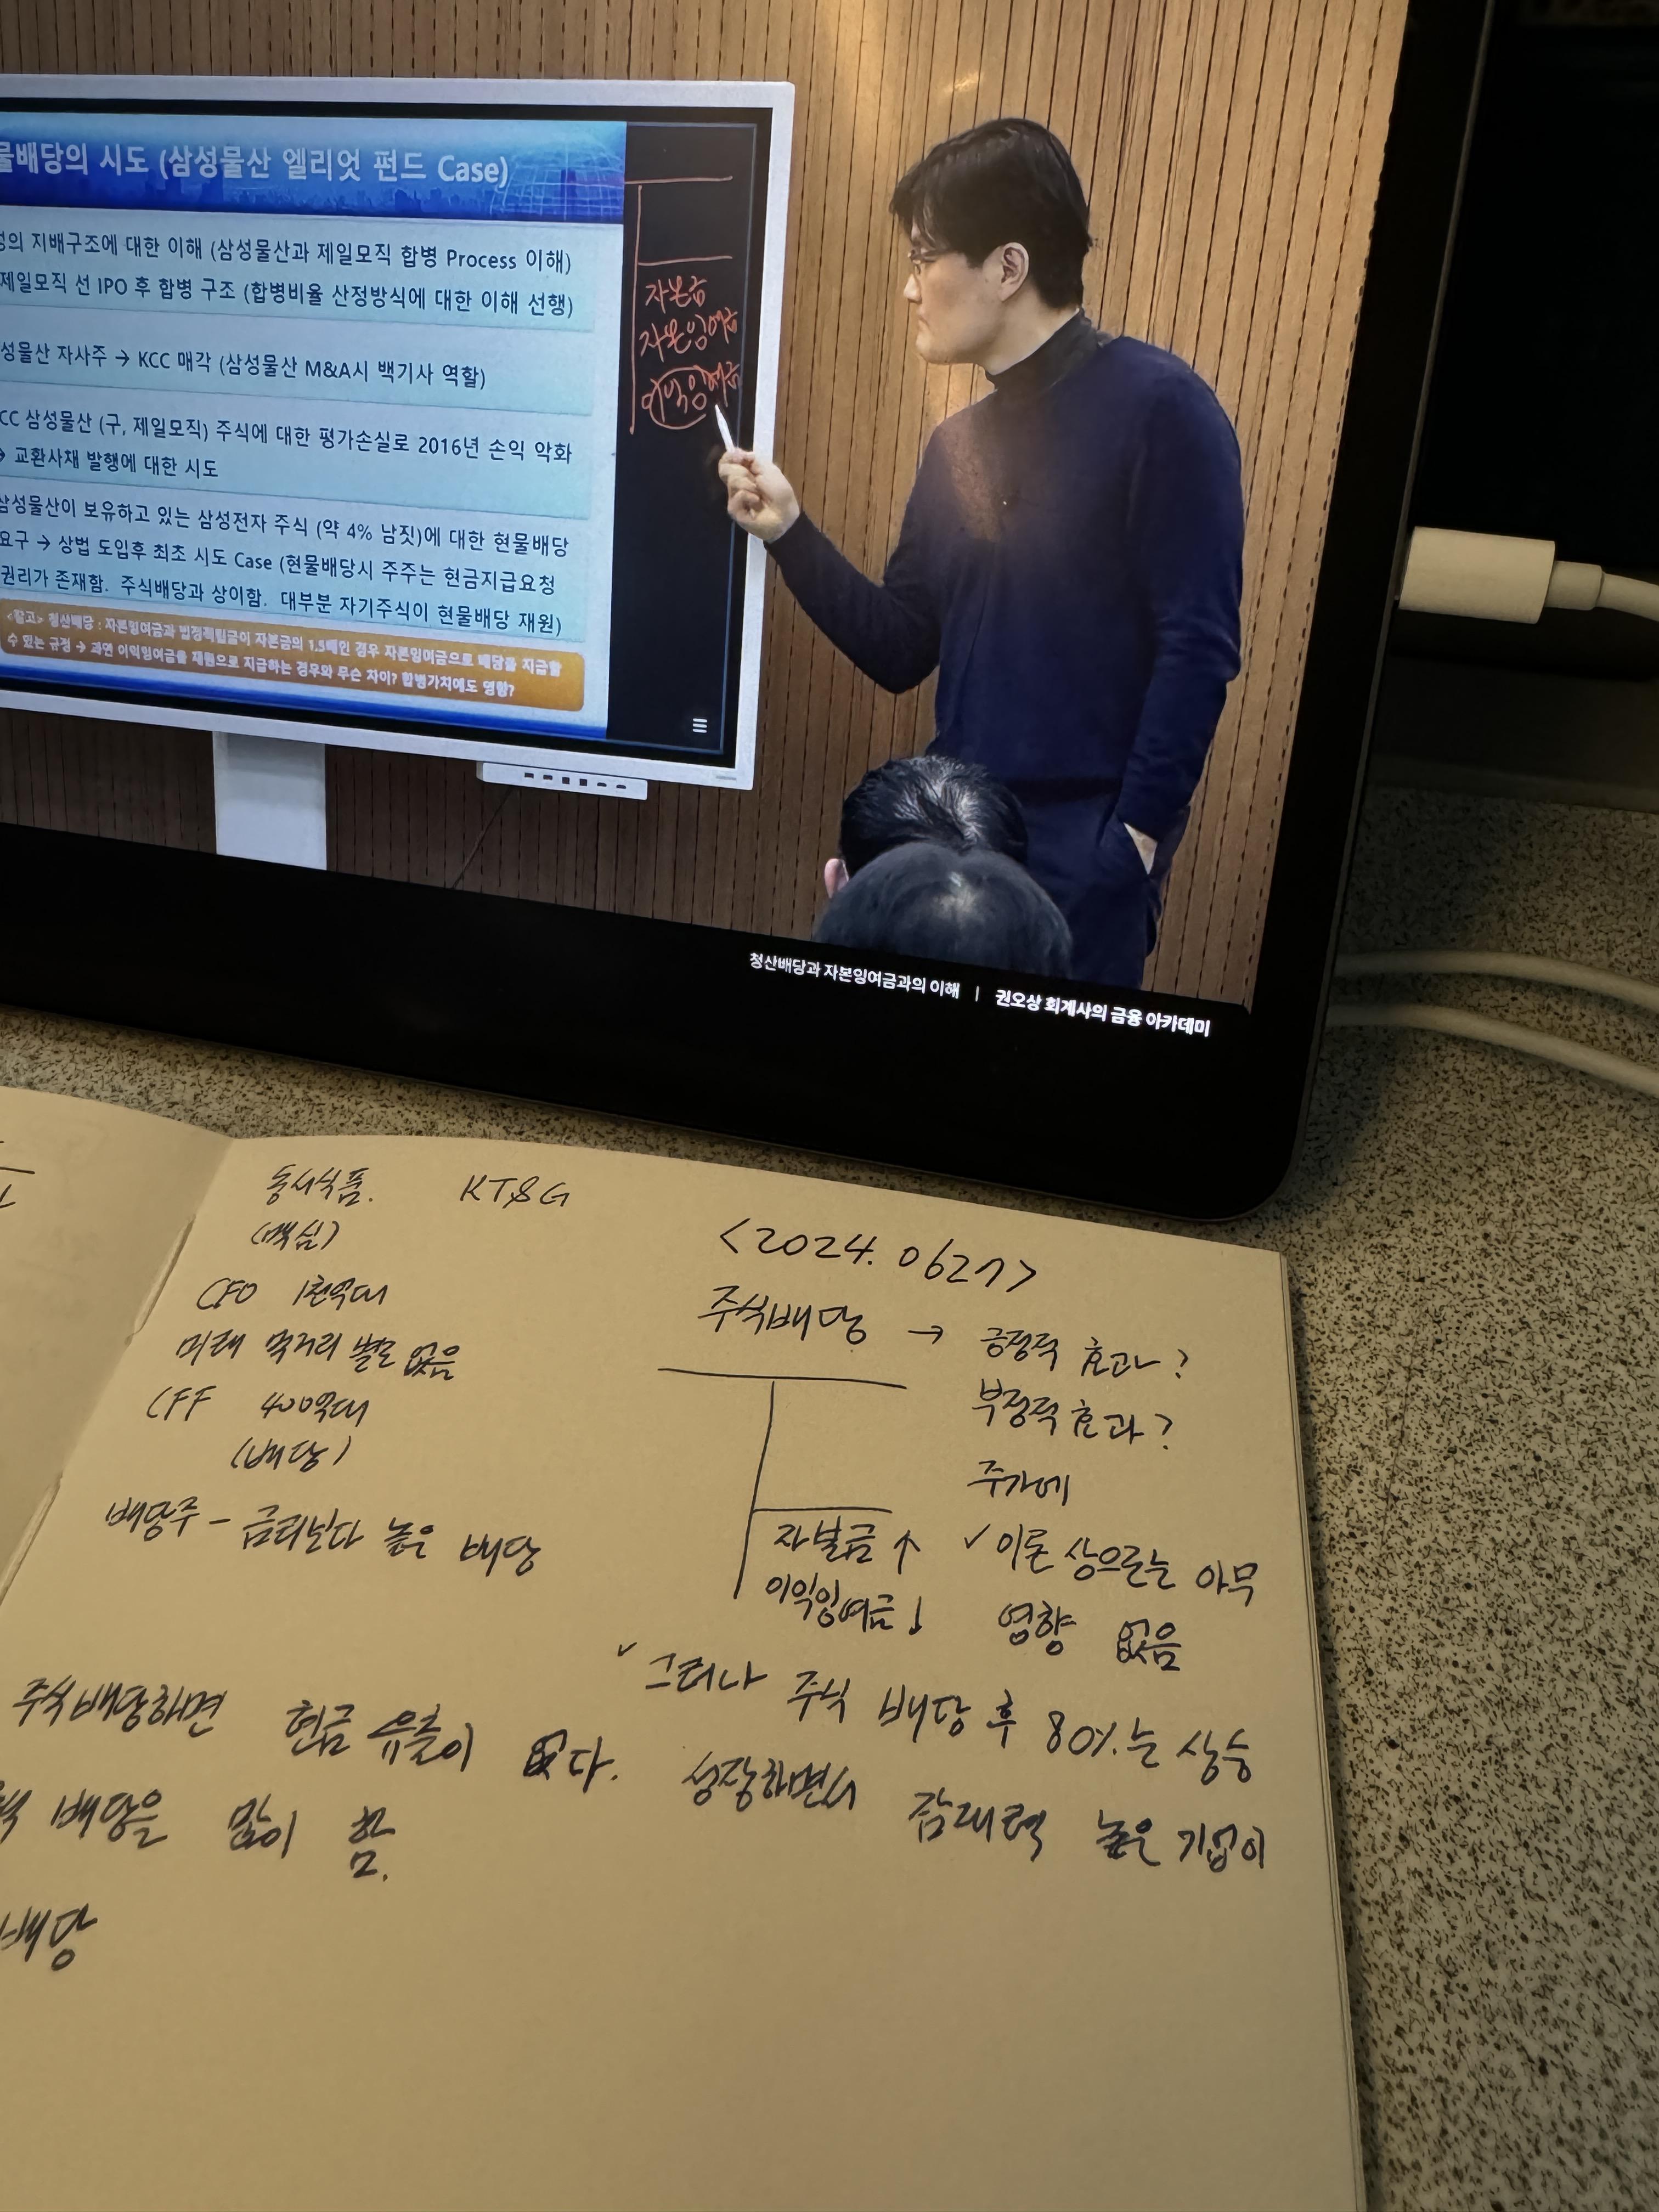 물배당의 시도 (삼성물산 엘리엇 펀드 Case)
성의 지배구조에 대한 이해 (삼성물산과 제일모직 합병 Process 이해)
제일모직 선 IPO 후 합병 구조 (합병비율 산정방식에 대한 이해 선행)
성물산 자사주 → KCC 매각 (삼성물산 M&A시 백기사 역할)
CC 삼성물산 (구, 제일모직) 주식에 대한 평가손실로 2016년 손익 악화
→ 교환사채 발행에 대한 시도
삼성물산이 보유하고 있는 삼성전자 주식 (약 4% 남짓)에 대한 현물배당
요구 → 상법 도입후 최초 시도 Case (현물배당시 주주는 현금지급요청
권리가 존재함. 주식배당과 상이함. 대부분 자기주식이 현물배당 재원)
<참고> 청산배당 : 자본잉여금과 법정적립금이 자본금의 1.5배인 경우 자본잉여금으로 배당을 지급할
수 있는 규정 → 과연 이익잉여금을 재원으로 지급하는 경우와 무슨 차이? 합병가치에도 영향?
자본금
자본잉여금
이익잉여금
청산배당과 자본잉여금과의 이해 | 권오상 회계사의 금융 아카데미
동서식품. KT&G
(맥심)
CFO 1천억대
미래 먹거리 별로 없음
CFF 400억대
(배당)
배당주 - 금리보다 높은 배당
주식배당하면 현금 유출이 없다.
배당을 많이 함.
배당
<2024. 0627>
주식배당 → 긍정적 효과?
부정적 효과?
주가에
자본금 ↑ ✓ 이론 상으로는 아무
이익잉여금 ↓ 영향 없음
✓ 그러나 주식 배당 후 80%는 상승
성장하면서 잠재력 높은 기업이